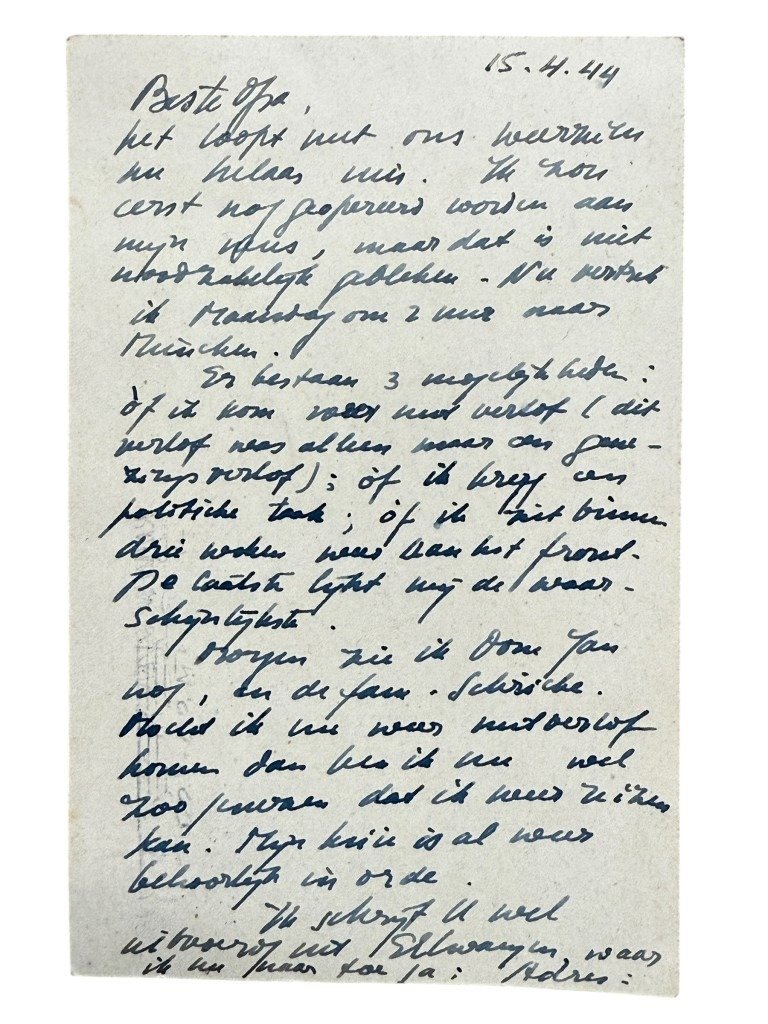 15.4.44
Beste Opa,
het loopt met ons weerzien
nu helaas mis. Ik zou
eerst nog geopereerd worden aan
mijn neus, maar dat is niet
noodzakelijk gebleken. Nu vertrek
ik Maandag om 2 uur naar
München.
Er bestaan 3 mogelijkheden:
òf ik kom weer met verlof (dit
verlof was alleen maar een gene-
zingsverlof); òf ik kreeg een
politieke taak; òf ik zit binnen
drie weken weer aan het front.
De laatste lijkt mij de waar-
schijnlijkste.
Morgen zie ik Oom Jan
nog, en de fam.
Mocht ik nu weer met verlof
komen dan ben ik nu wel
zoo genezen dat ik weer reizen
kan. Mijn knie is al weer
behoorlijk in orde.
Ik schrijf U wel
uitvoerig uit Ellwangen waar
ik nu naar toe ga: Adres: